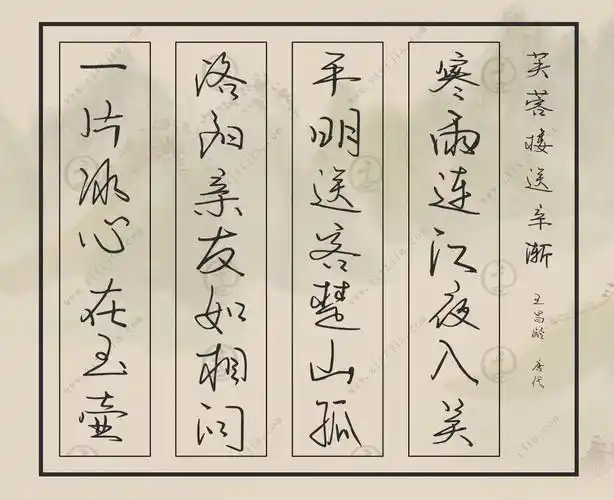 芙蓉楼送辛渐
王昌龄 唐代
寒雨连江夜入吴
平明送客楚山孤
洛阳亲友如相问
一片冰心在玉壶